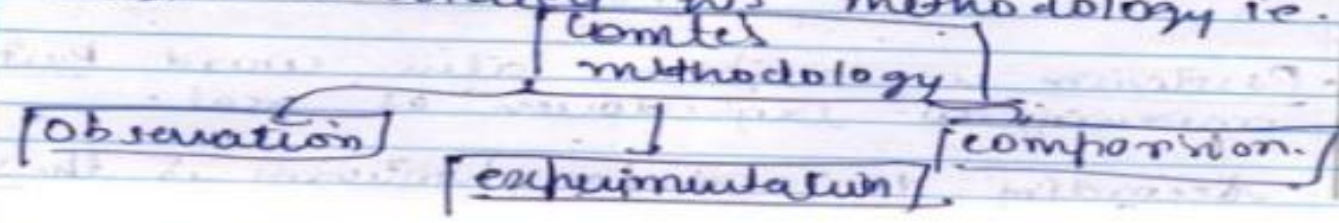 methodology ie.
Comte's
methodology
Observation
experimentation
comparision.